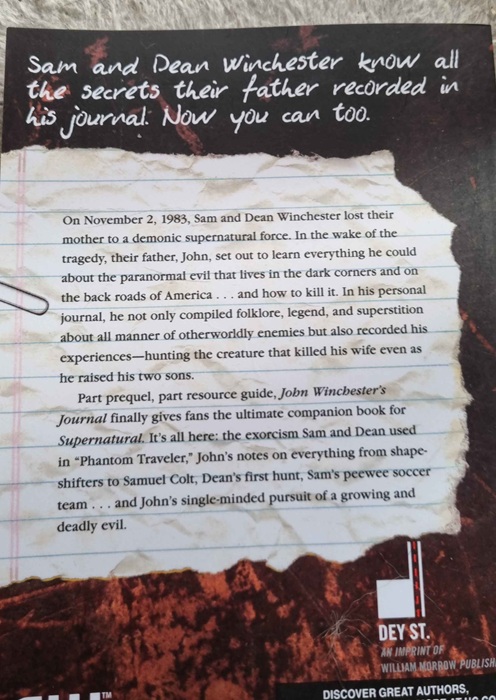 Sam and Dean Winchester know all
the secrets their father recorded in
his journal. Now you can too.
On November 2, 1983, Sam and Dean Winchester lost their
mother to a demonic supernatural force. In the wake of the
tragedy, their father, John, set out to learn everything he could
about the paranormal evil that lives in the dark corners and on
the back roads of America . . . and how to kill it. In his personal
journal, he not only compiled folklore, legend, and superstition
about all manner of otherworldly enemies but also recorded his
experiences—hunting the creature that killed his wife even as
he raised his two sons.
Part prequel, part resource guide, John Winchester's
Journal finally gives fans the ultimate companion book for
Supernatural. It's all here: the exorcism Sam and Dean used
in “Phantom Traveler,” John's notes on everything from shape-
shifters to Samuel Colt, Dean's first hunt, Sam's peewee soccer
team . . . and John's single-minded pursuit of a growing and
deadly evil.
DEY ST.
AN IMPRINT OF
WILLIAM MORROW PUBLISH
TM
DISCOVER GREAT AUTHORS,